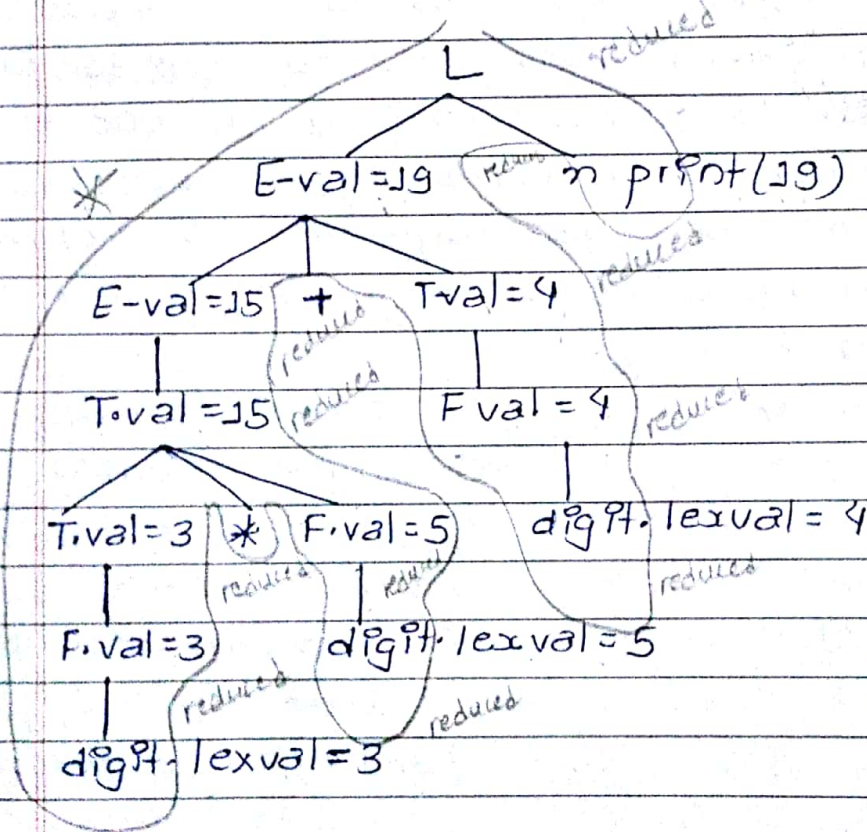 reduced
L
E-val=19 reduced n print(19)
*
reduced
E-val=15 + T-val=4
reduced
T.val=15 reduced F val=4 reduced
T.val=3 * F.val=5 digit.lexval=4
reduced reduced reduced
F.val=3 digit.lexval=5
reduced reduced
digit.lexval=3